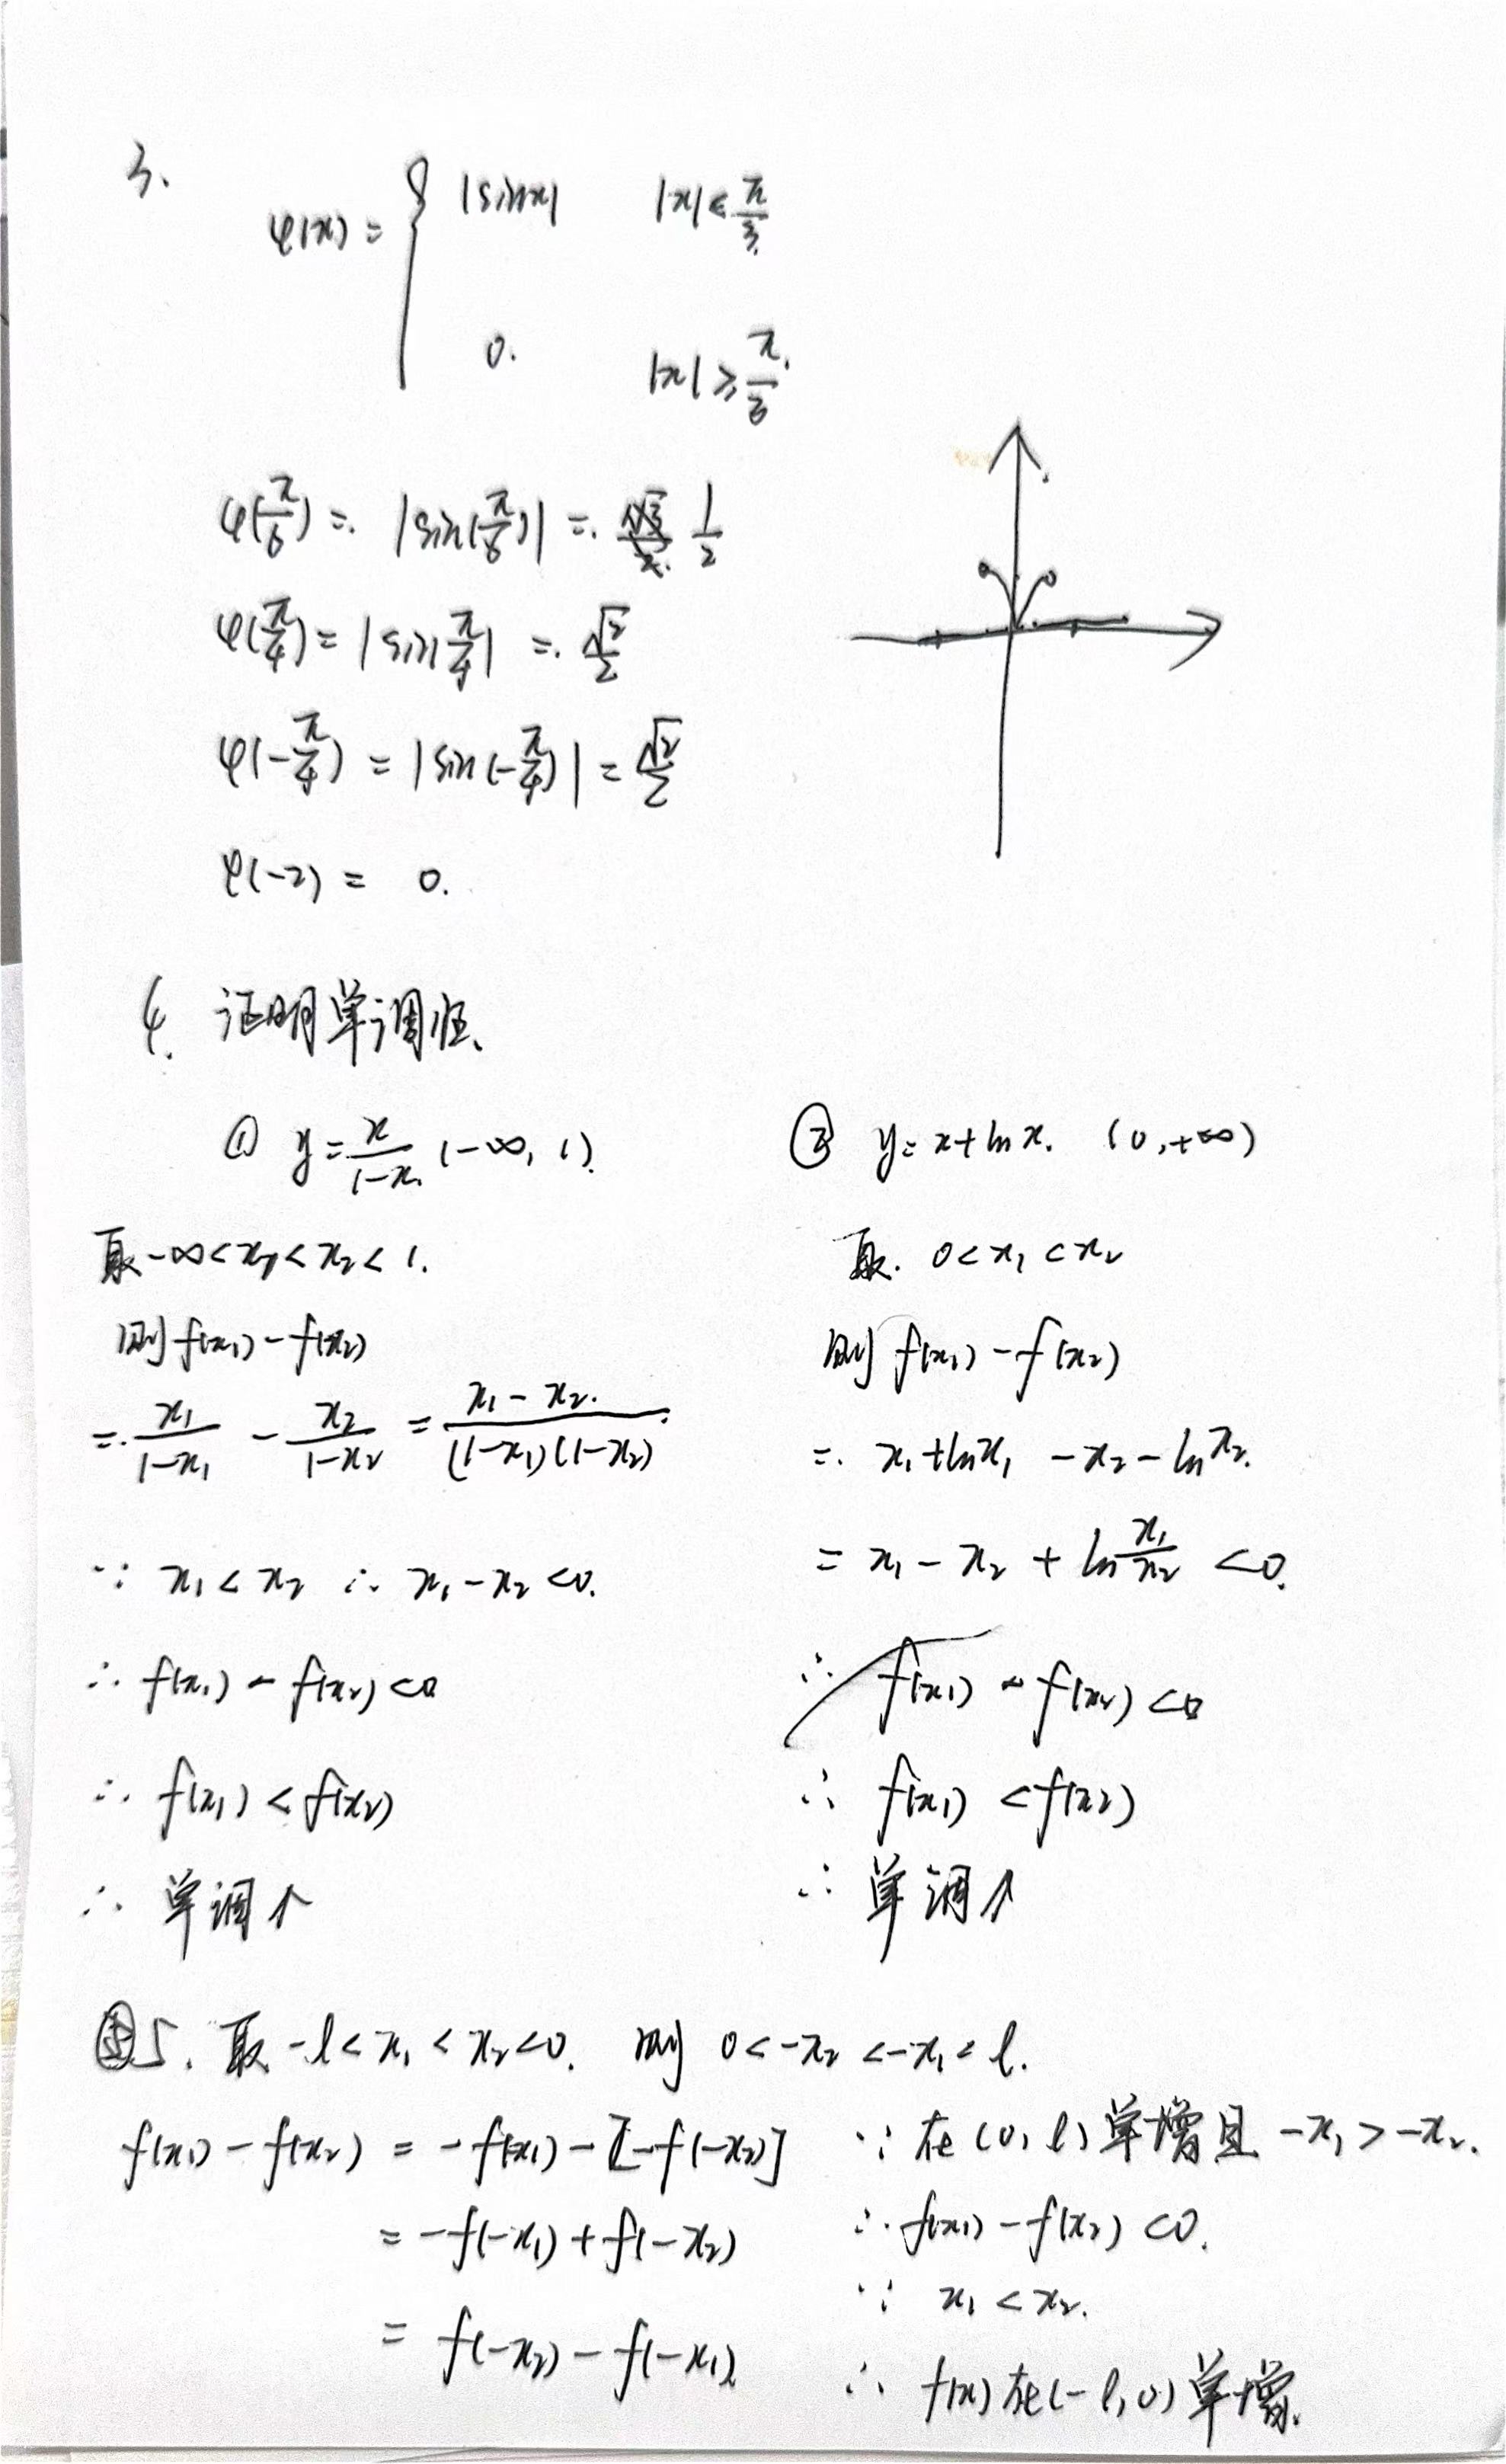 3.
φ(x) = { |sinx| |x| < π/3
0. |x| ≥ π/3.
φ(π/6) = |sin(π/6)| = 1/2
φ(π/4) = |sin π/4| = √2/2
φ(-π/4) = |sin(-π/4)| = √2/2
φ(-2) = 0.
4. 证明单调性、
① y = x/(1-x) (-∞, 1).
取 -∞ < x₁ < x₂ < 1.
则 f(x₁) - f(x₂)
= x₁/(1-x₁) - x₂/(1-x₂) = (x₁ - x₂)/((1-x₁)(1-x₂))
∵ x₁ < x₂ ∴ x₁ - x₂ < 0.
∴ f(x₁) - f(x₂) < 0
∴ f(x₁) < f(x₂)
∴ 单调↑
② y = x + ln x. (0, +∞)
取. 0 < x₁ < x₂
则 f(x₁) - f(x₂)
= x₁ + ln x₁ - x₂ - ln x₂.
= x₁ - x₂ + ln x₁/x₂ < 0.
∴ f(x₁) - f(x₂) < 0
∴ f(x₁) < f(x₂)
∴ 单调↑
5. 取 -l < x₁ < x₂ < 0. 则 0 < -x₂ < -x₁ < l.
f(x₁) - f(x₂) = -f(x₁) - [-f(-x₂)]
= -f(-x₁) + f(-x₂)
= f(-x₂) - f(-x₁)
∵ 在 (0, l) 单增且 -x₁ > -x₂.
∴ f(x₁) - f(x₂) < 0.
∵ x₁ < x₂.
∴ f(x) 在 (-l, 0) 单增.